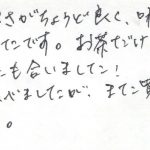 さがちょうど良く、味
てです。お茶だけ
にも合いました!
べましたが、また買
。